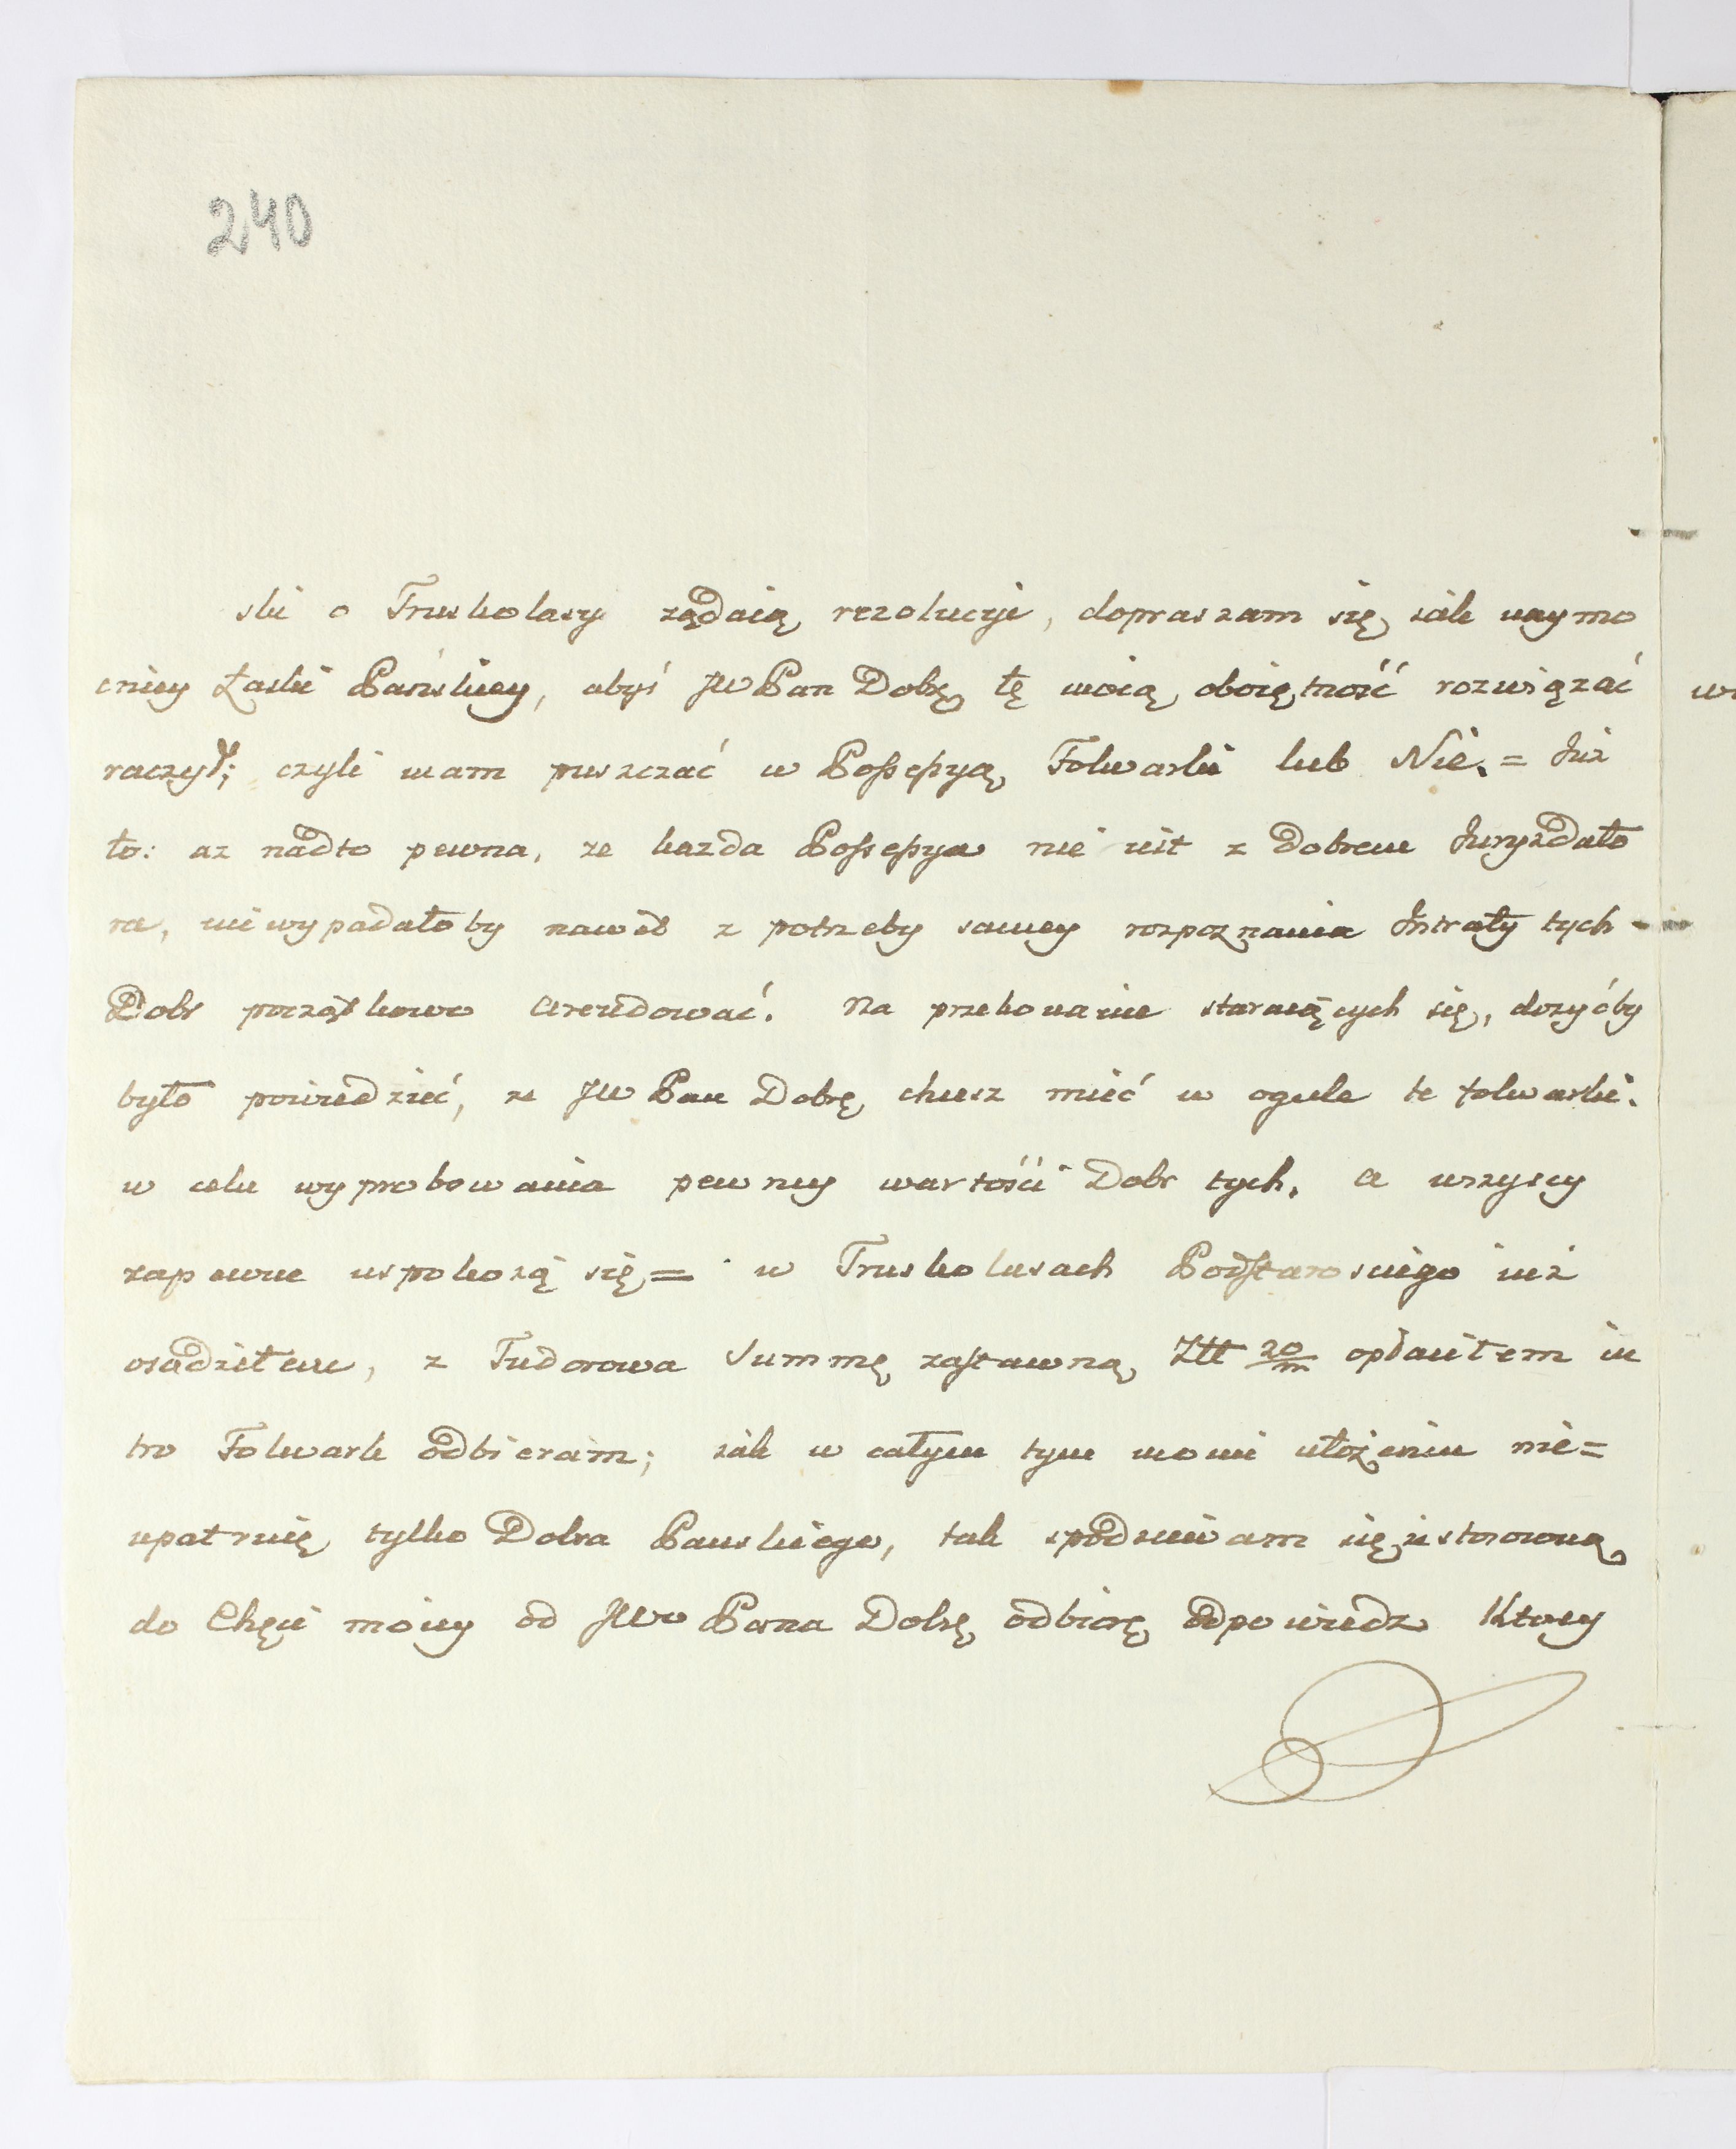 240
ski o Truskolasy rządaią rezolucye, dopraszam się iak naymo
cniey Łaski Pańskiey, abyś JW Pan Dobrę tę moią oboiętność rozwiązać
raczył; czyli mam puszczać w Possessyą Folwarki lub Nie. = Już
to: az nadto pewna, ze kazda Possessya nie iest z Dobrem Juryzdato
ra, niewypadałoby nawet z potrzeby samey rozpoznania Intraty tych
Dobr początkowo Arendować. Na przekonanie staraiących się, dosyćby
było powiedzieć, ze JW Pan Dobrę chcesz mieć w ogule te folwarki.
w celu wyprobowania pewney wartości Dobr tych. a wszyscy
zapewne uspokoią się = w Truskolasach Podstarosciego iuż
osadziłem, z Tudorowa Summę zastawną Ztt 20/m opłaciłem iu
tro Folwark odbieram; iak w całym tym moim ułożeniu nie=
upatruię tylko Dobra Panskiego, tak spodziewam się iż stosowną
do Chęci moiey od JWo Pana Dobrę odbiorę odpowiedz Ktorey